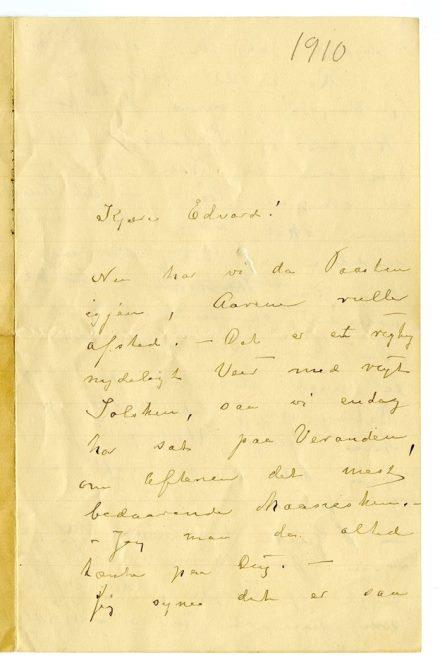 1910
Kjære Edvard!
Nu har vi da Paasken
igjen, Aarene ruller
afsted. – Det er et rigtig
nydeligt Veir med rigt
Solskin, saa vi endag
har sat paa Veranden,
om Aftenen det mest
bedaarende Maaneskin. –
– Jeg maa da altid
tænke paa Dig. –
Jeg synes det er saa